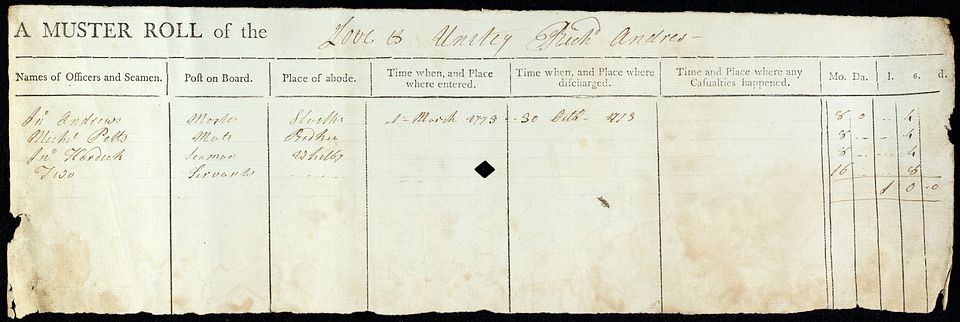 A MUSTER ROLL of the Love & Unitey Richd Andres
Names of Officers and Seamen. Post on Board. Place of abode. Time when, and Place where entered. Time when, and Place where discharged. Time and Place where any Casualties happened. Mo. Da. l. s. d.
Jno Andrews Mastr 1 March 1773 30 Octr 1773 8 0 .. 4
Michl Potts Mate 8 .. .. 4
Jno Hardick Seaman Whitby 8 .. .. 4
Two Servants 16 .. .. 8
1 0 0